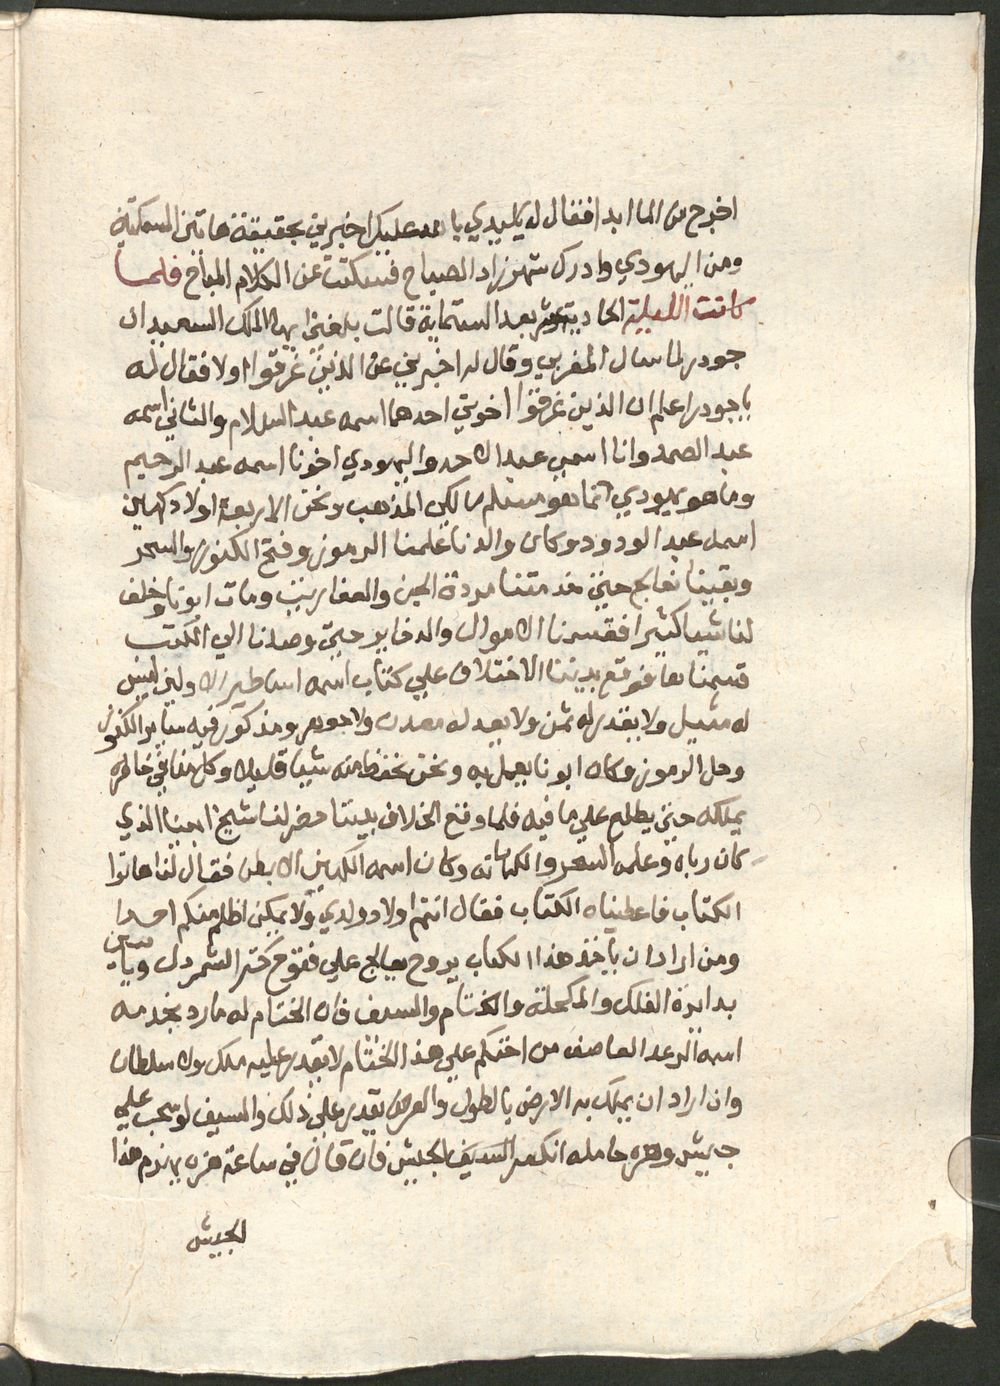 اخرج من الما ابدا فقال له ياسيدي بالله عليك اخبرني بحقيقة هاتين السمكتين
ومن اليهودي وادرك شهرزاد الصباح فسكتت عن الكلام المباح فلما
كانت الليلة الحادية عشر بعد الستماية قالت بلغني ايها الملك السعيد ان
جودر لما سال المغربي وقال له اخبرني عن الذين غرقوا اولا فقال له
ياجودر اعلم ان الذين غرقوا اخوتي احدهما اسمه عبد السلام والثاني اسمه
عبد الصمد وانا اسمي عبد الاحد واليهودي اخونا اسمه عبد الرحيم
وما هو يهودي انما هو مسلم مالكي المذهب ونحن الاربعة اولاد
اسمه عبد الودود وكان والدنا علمنا الرموز وفتح الكنوز والسحر
وبقينا نعالج حتي خدمتنا مردة الجن والعفاريت ومات ابونا وخلف
لنا شيا كثيرا فقسمنا الاموال والدخاير حتي وصلنا الي الكتب
قسمناها فوقع بيننا الاختلاف علي كتاب اسمه اساطير الاولين ليس
له مثيل ولا يقدر له ثمن ولا يعدله معدن ولا جوهر ومذكور فيه ساير الكنوز
وحل الرموز وكان ابونا يعمل به ونحن نحفظ منه شيا قليلا وكل منا في خاطره
يملكه حتي يطلع علي ما فيه فلما وقع الخلاف بيننا حضر لنا شيخ ابينا الذي
كان رباه وعلمه السحر والكهانه وكان اسمه الكهين الابطن فقال لنا هاتوا
الكتاب فاعطيناه الكتاب فقال انتم اولاد ولدي ولا يمكن اظلم منكم احدا
ومن اراد ان ياخذ هذا الكتاب يروح يعالج علي فتوح كنز الشمردل وياتيني
بدايرة الفلك والمكحلة والختام والسيف فان الختام له مارد يخدمه
اسمه الرعد العاصف من احتكم علي هذا الختام لا يقدر عليه ملك ولا سلطان
وان اراد ان يملك به الارض بالطول والعرض يقدر علي ذلك والسيف لو سحب علي
جيش وهزه حامله انكسر الجيش فان قال في ساعة هزه يهزم هذا
الجيش